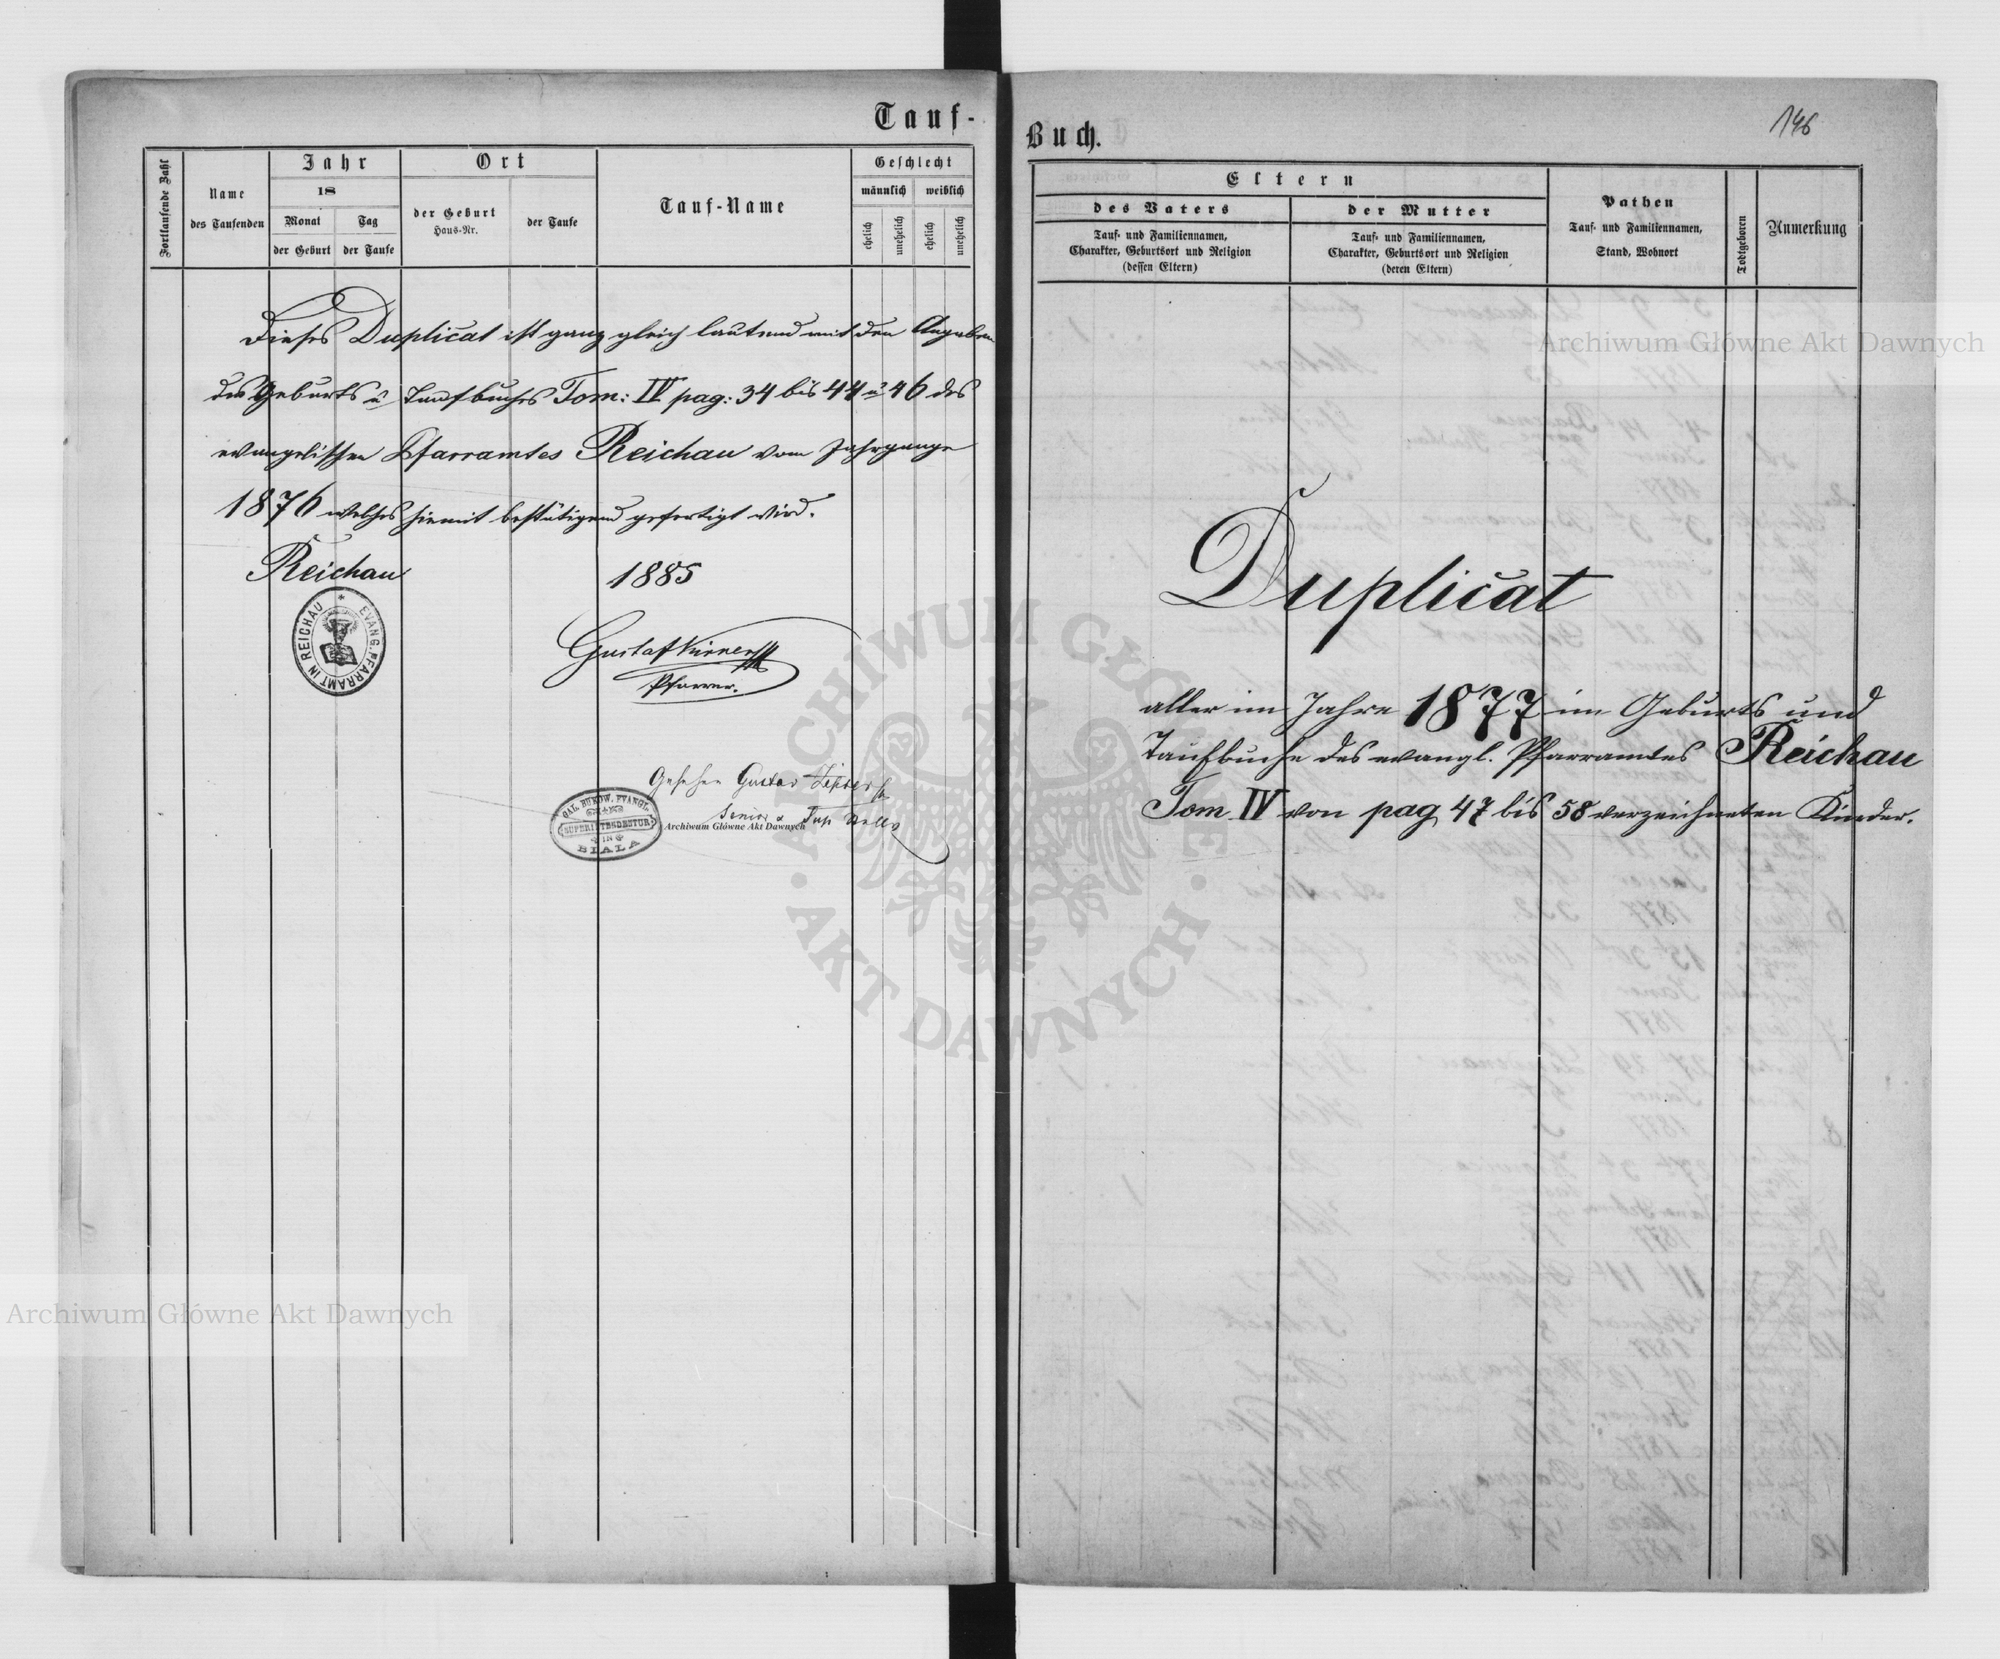 Tauf-
Fortlaufende Zahl
Name
des Taufenden
Jahr
18
Monat
Tag
der Geburt
der Taufe
Ort
der Geburt
Haus-Nr.
der Taufe
Tauf-Name
Geschlecht
männlich
weiblich
ehelich
unehelich
ehelich
unehelich
Dieses Duplicat ist ganz gleich lautend mit den Angaben
des Geburts u Taufbuches Tom: IV pag: 34 bis 44 u 46 des
evangelischen Pfarramtes Reichau vom Jahrgange
1876 welches hiemit bestätigend gefertigt wird.
Reichau
1885
EVANG. PFARRAMT IN REICHAU
Gustaf
Pfarrer.
Gesehen Gustav
Senior
GAL. BUKOW. EVANGL.
SUPERINTENDENTUR
IN
BIALA
Archiwum Główne Akt Dawnych
Archiwum Główne Akt Dawnych
146
Buch.
Eltern
des Vaters
Tauf- und Familiennamen,
Charakter, Geburtsort und Religion
(dessen Eltern)
der Mutter
Tauf- und Familiennamen,
Charakter, Geburtsort und Religion
(deren Eltern)
Pathen
Tauf- und Familiennamen,
Stand, Wohnort
Todtgeboren
Anmerkung
Archiwum Główne Akt Dawnych
Duplicat
aller im Jahre 1877 im Geburts und
Taufbuche des evangl. Pfarramtes Reichau
Tom IV von pag 47 bis 58 verzeichneten Kinder.
ARCHIWUM GŁÓWNE
AKT DAWNYCH